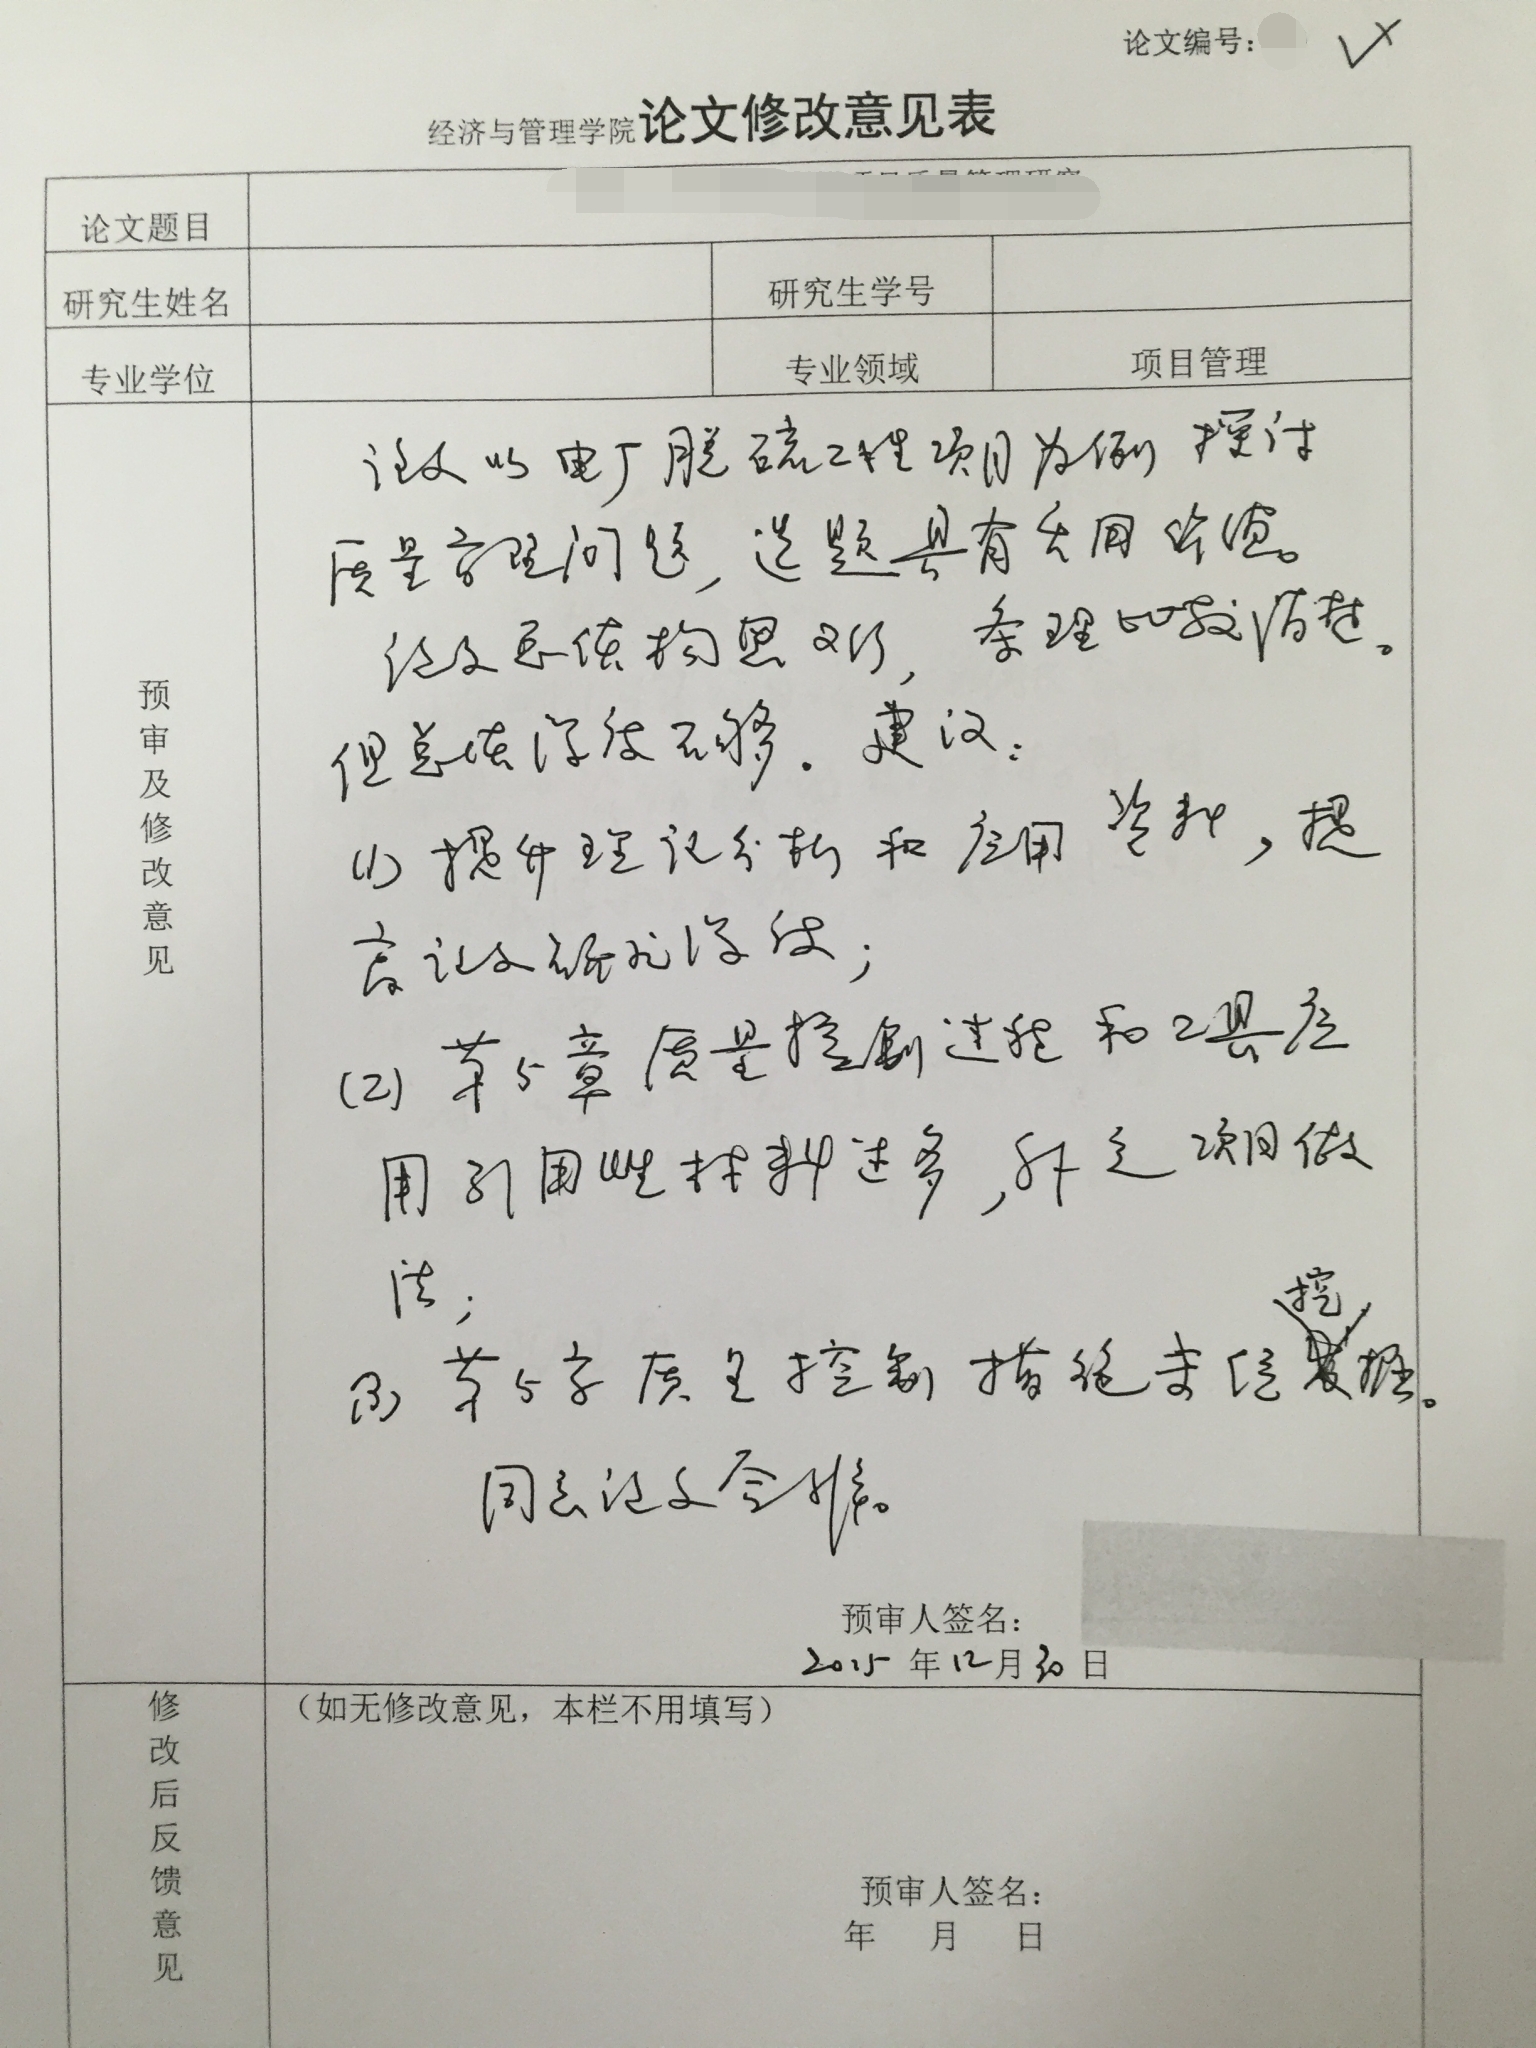 论文编号:
经济与管理学院论文修改意见表
项目质量管理研究
论文题目
研究生姓名 研究生学号
专业学位 专业领域 项目管理
预审及修改意见
论文以电厂脱硫工程项目为例探讨
质量管理问题,选题具有实用价值。
论文总体构思可行,条理比较清楚。
但总体深度不够。建议:
(1) 提升理论分析和应用资料,提
高论文研究深度;
(2) 第5章质量控制过程和工具应
用引用性材料过多,补充项目做
法;
(3) 第5章质量控制措施未经挖掘。
同意论文答辩。
预审人签名:
2015年12月30日
修改后反馈意见
(如无修改意见,本栏不用填写)
预审人签名:
年 月 日